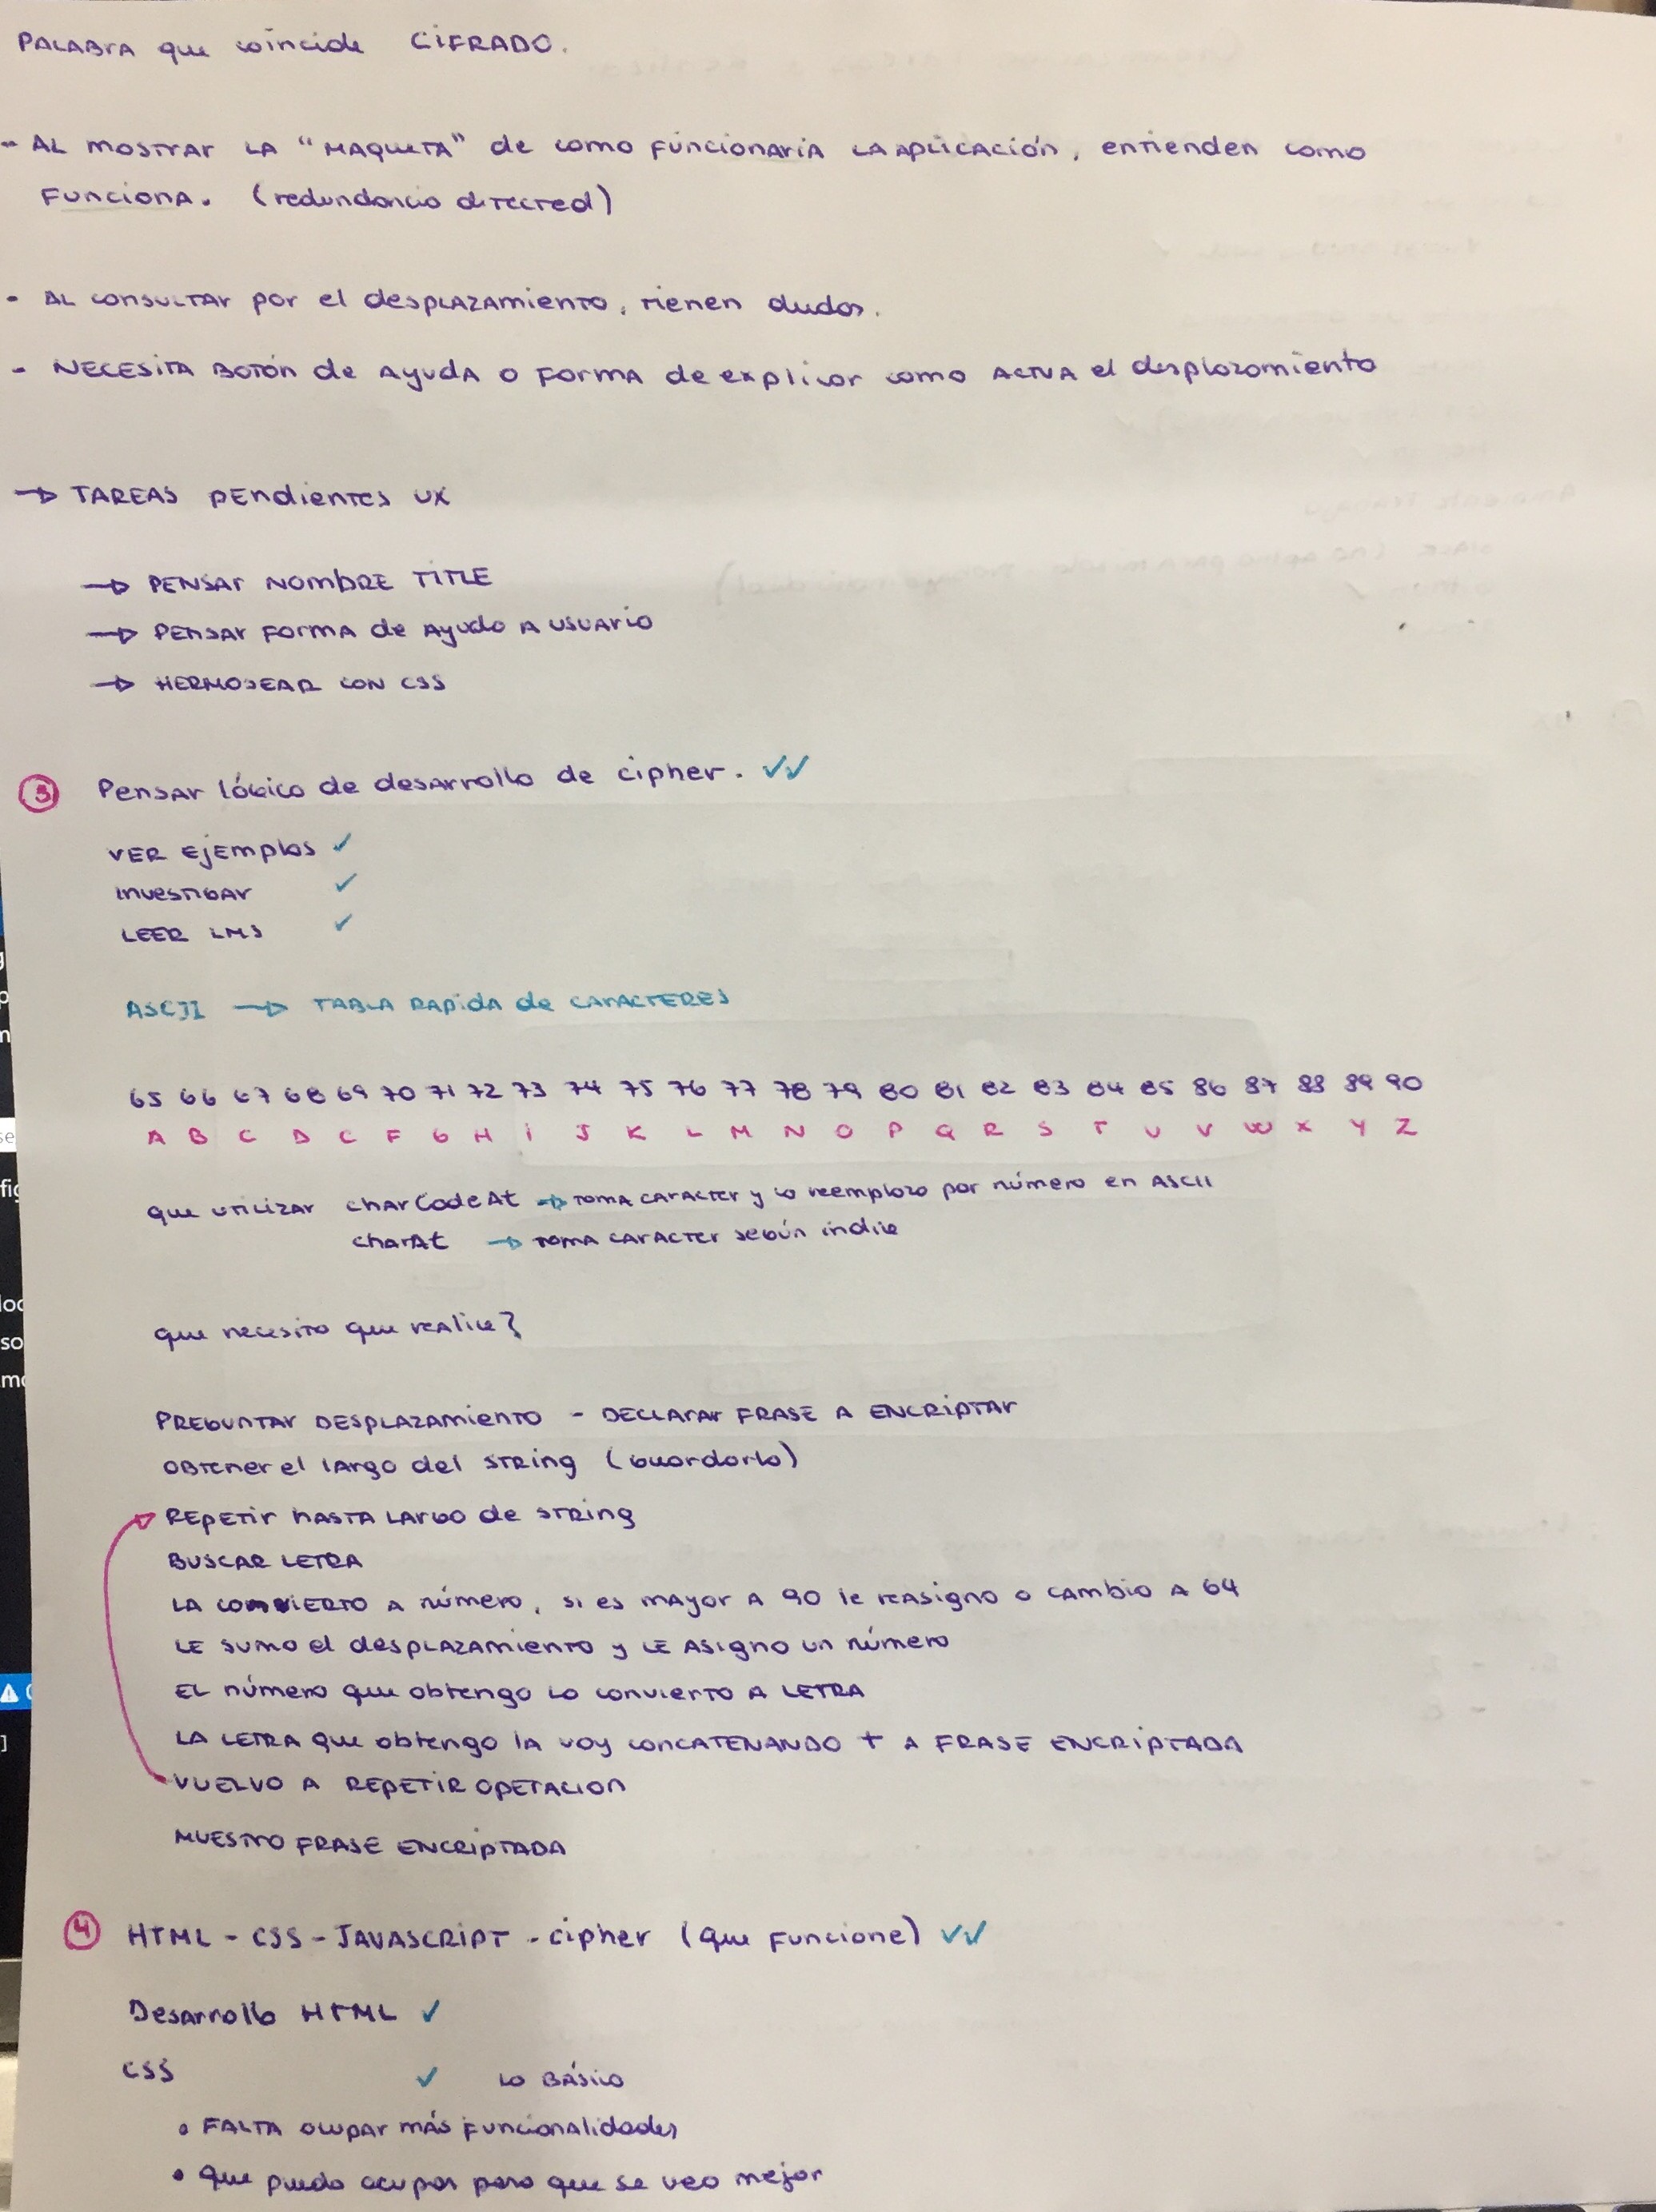 PALABRA que coincide CIFRADO.
- AL MOSTRAR LA "MAQUETA" de como FUNCIONARIA LA APLICACIÓN, entienden como
FUNCIONA. (redundancia detected)
- AL CONSULTAR por el desplazamiento, tienen dudas.
- NECESITA BOTÓN de AYUDA O FORMA de explicar como ACTUA el desplazamiento
→ TAREAS PENDIENTES UX
→ PENSAR NOMBRE TITLE
→ PENSAR FORMA de AYUDA A USUARIO
→ HERMOSEAR CON CSS
3 Pensar lógica de desarrollo de cipher. ✓✓
VER EJEMPLOS ✓
INVESTIGAR ✓
LEER LMS ✓
ASCII → TABLA RAPIDA de CARACTERES
65 66 67 68 69 70 71 72 73 74 75 76 77 78 79 80 81 82 83 84 85 86 87 88 89 90
A B C D C F G H I J K L M N O P Q R S T U V W X Y Z
que utilizar charCodeAt → TOMA CARACTER y lo reemplaza por número en ASCII
charAt → TOMA CARACTER según indice
que necesito que realice?
PREGUNTAR DESPLAZAMIENTO - DECLARAR FRASE A ENCRIPTAR
OBTENER el largo del STRING (Guardarlo)
REPETIR HASTA LARGO de STRING
BUSCAR LETRA
LA CONVIERTO A número, si es mayor A 90 le reasigno o cambio A 64
LE SUMO el desplazamiento y LE ASIGNO un número
EL número que obtengo lo convierto A LETRA
LA LETRA que obtengo la voy CONCATENANDO + A FRASE ENCRIPTADA
VUELVO A REPETIR OPERACION
MUESTRO FRASE ENCRIPTADA
4 HTML - CSS - JAVASCRIPT - cipher (que funcione) ✓✓
Desarrollo HTML ✓
CSS ✓ LO BÁSICO
• FALTA ocupar más funcionalidades
• que puedo ocupar para que se vea mejor